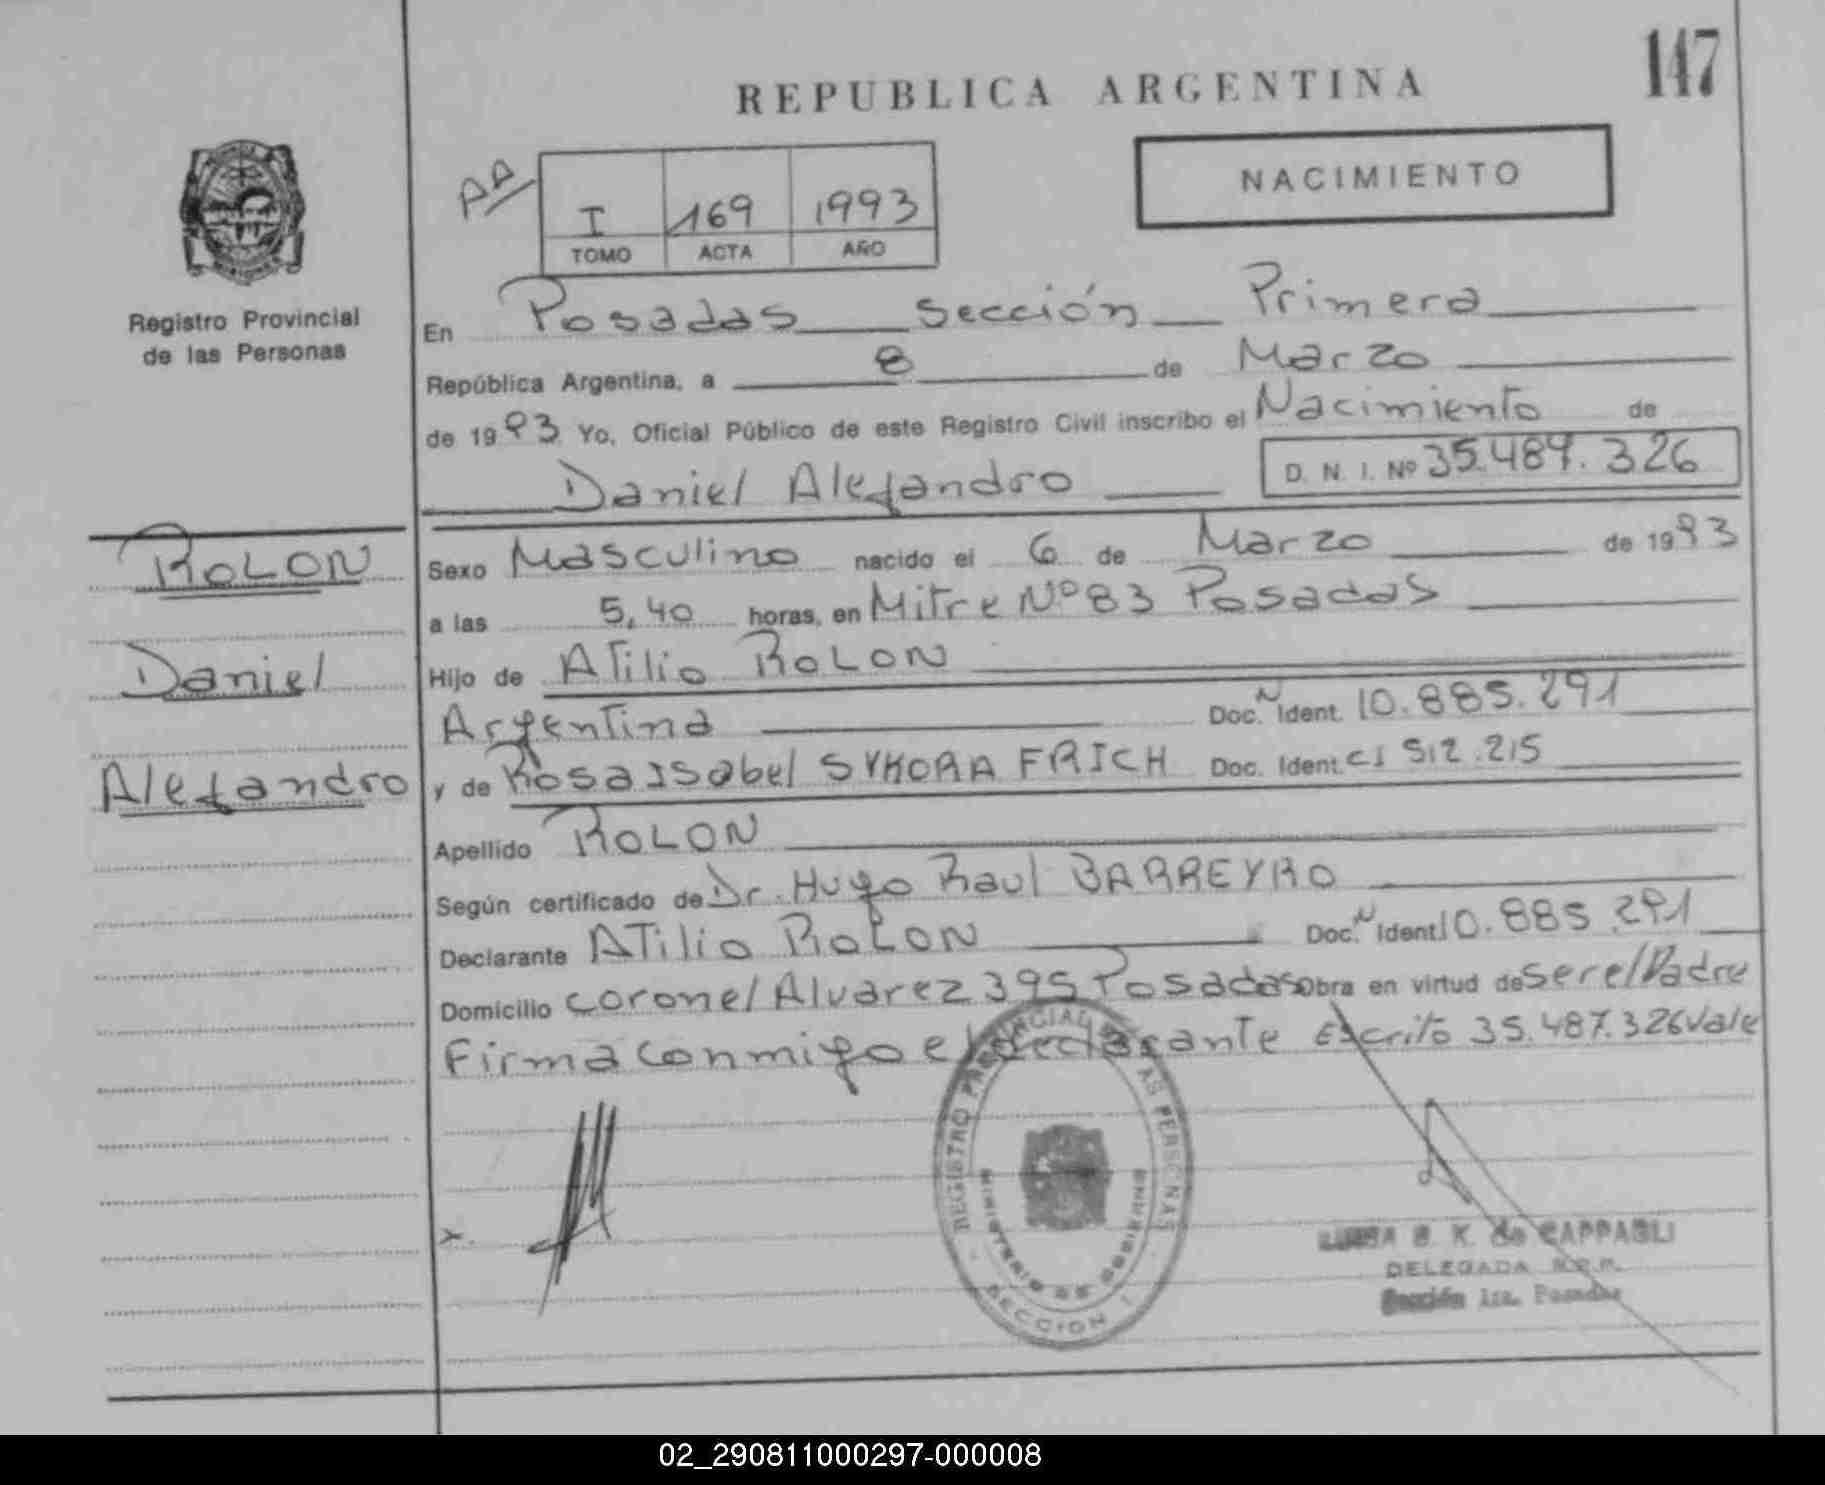 147
REPUBLICA ARGENTINA
NACIMIENTO
AA
I 169 1993
TOMO ACTA AÑO
Registro Provincial
de las Personas
En Posadas Sección Primera
República Argentina, a 8 de Marzo
de 1993 Yo, Oficial Público de este Registro Civil inscribo el Nacimiento de
Daniel Alejandro D. N. I. Nº 35.487.326
ROLON
Daniel
Alejandro
Sexo Masculino nacido el 6 de Marzo de 1993
a las 5,40 horas, en Mitre Nº 83 Posadas
Hijo de Atilio ROLON
Argentina Doc. N Ident. 10.885.291
y de Rosa Isabel SYKORA FRICH Doc. Ident. CI 512.215
Apellido ROLON
Según certificado de Dr. Hugo Raul BARREYRO
Declarante Atilio ROLON Doc. N Ident 10.885.291
Domicilio Coronel Alvarez 395 Posadas Obra en virtud de Ser el Padre
Firma conmigo el declarante Escrito 35.487.326 Vale
REGISTRO PROVINCIAL DE LAS PERSONAS
MINISTERIO DE GOBIERNO
SECCION I
X.
LUISA B. K. de CAPPAGLI
DELEGADA R.P.P.
Sección 1ra. Posadas
02_290811000297-000008